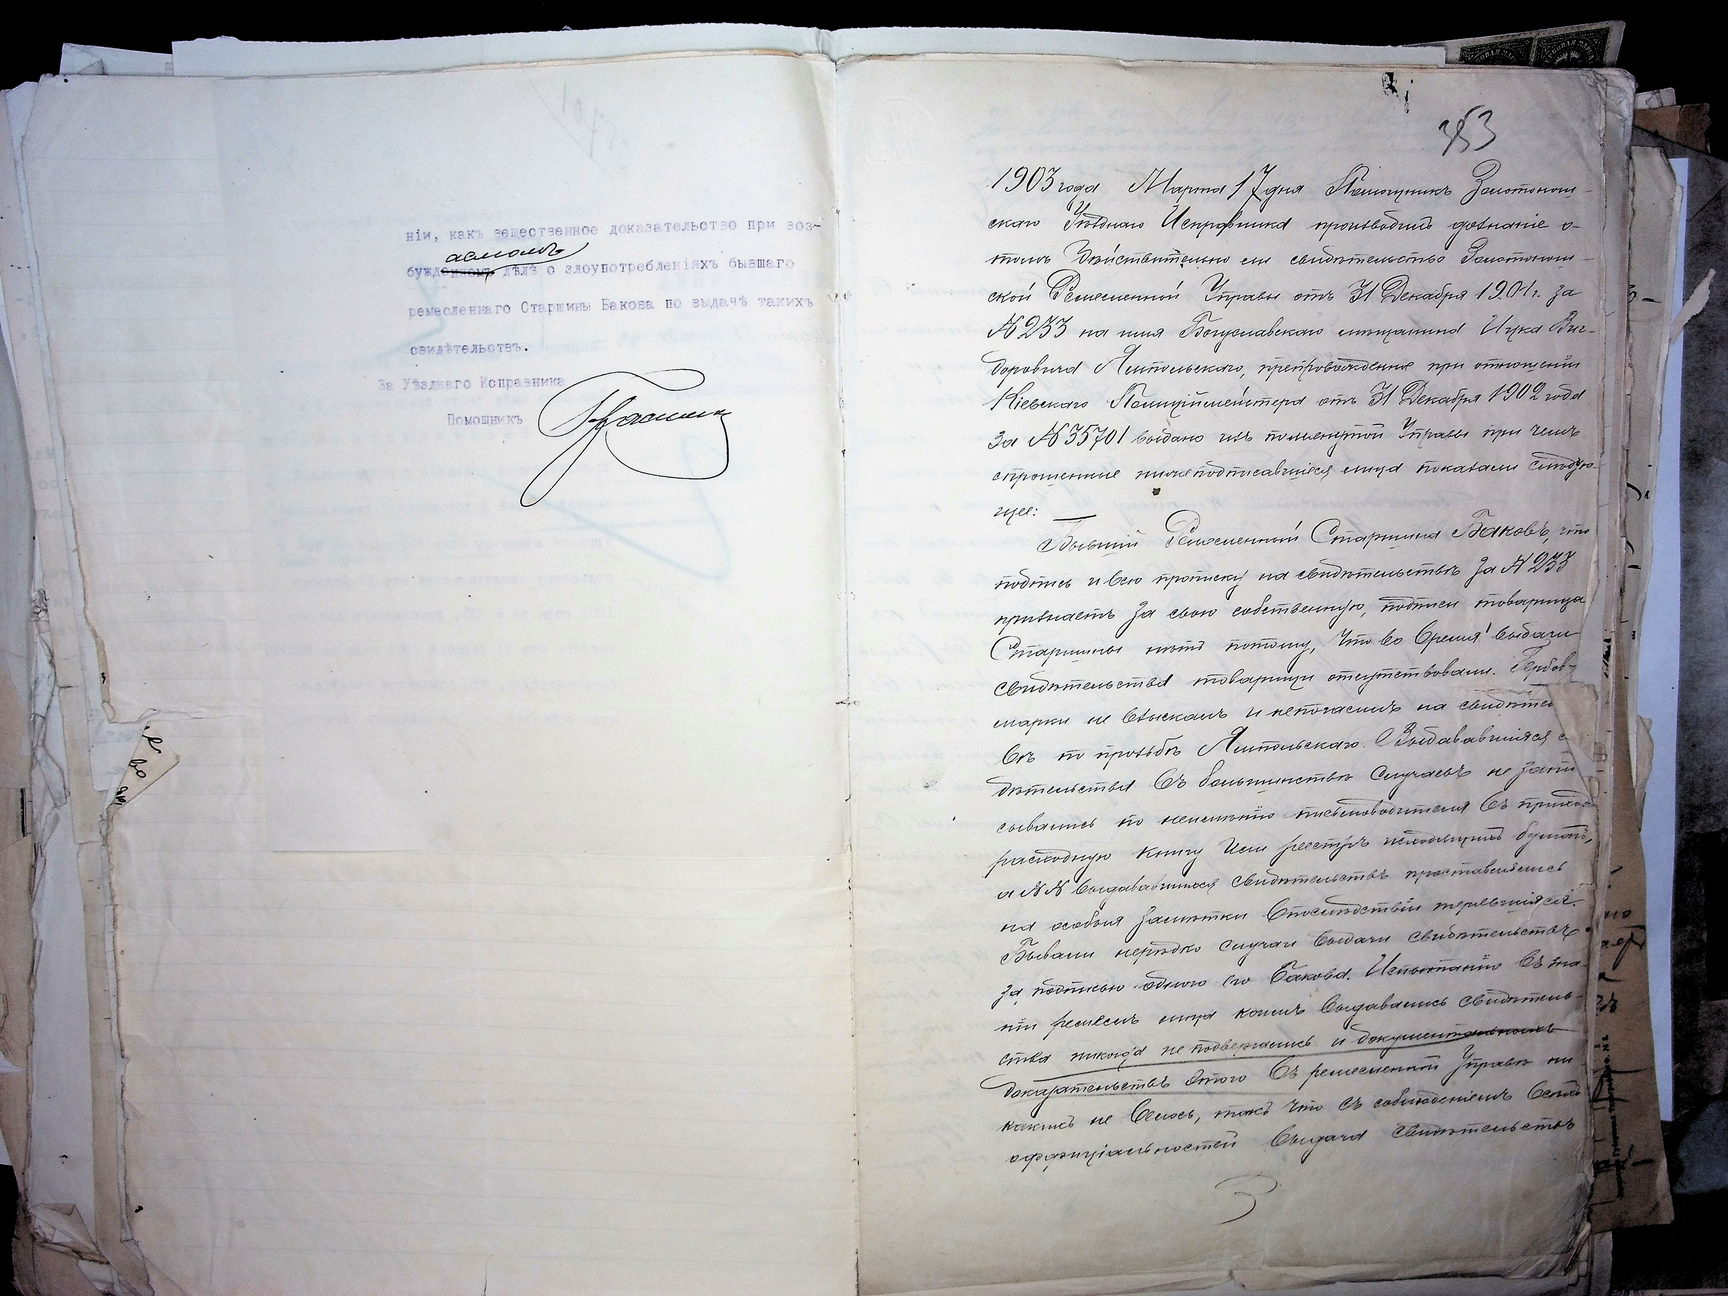 ніи, какъ вещественное доказательство при воз-
аемомъ
бужденномъ дѣлѣ о злоупотребленіяхъ бывшаго
ремесленнаго Старшины Бакова по выдачѣ такихъ
свидѣтельствъ.
За Уѣзднаго Исправника
Помощникъ
353
1903 года Марта 17 дня Помощникъ Золотонош-
скаго Уѣзднаго Исправника производилъ дознаніе о
томъ дѣйствительно ли свидѣтельство Золотонош-
ской Ремесленной Управы отъ 31 Декабря 1901 г. за
№ 233 на имя Богуславскаго мѣщанина Ицка Виг-
доровича Липольскаго, препровожденное при отношеніи
Кіевскаго Полиціймейстера отъ 31 Декабря 1902 года
за № 35701 выдано изъ помянутой Управы при чемъ
спрошенные нижеподписавшіеся лица показали слѣдую-
щее:
Бывшій Ремесленный Старшина Баковъ, что
подпись и всю прописку на свидѣтельствѣ за № 233
признаетъ за свою собственную, подписи товарища
Старшины нѣтъ потому, что во время выдачи
свидѣтельства товарищи отсутствовали. Гербов
марки не взыскалъ и непогасилъ на свидѣтел
вѣ по просьбѣ Липольскаго. Выдававшіяся с
дѣтельства въ большинствѣ случаевъ не запи
сывались по неимѣнію письмоводителя въ приходо
расходную книгу или реестръ исходящихъ бумагъ,
а №№ выдававшихся свидѣтельствъ проставлялись
на особыя замѣтки впослѣдствіи терявшіяся.
Бывали нерѣдко случаи выдачи свидѣтельствъ
за подписью одного его Бакова. Испытанію въ зна-
ніи ремеслъ лица коимъ выдавались свидѣтель-
ства никогда не подвергались и документальныхъ
доказательствъ этого въ ремесленной Управѣ ни
какихъ не велось, такъ что съ соблюденіемъ всѣхъ
оффиціальностей выдача свидѣтельствъ
3